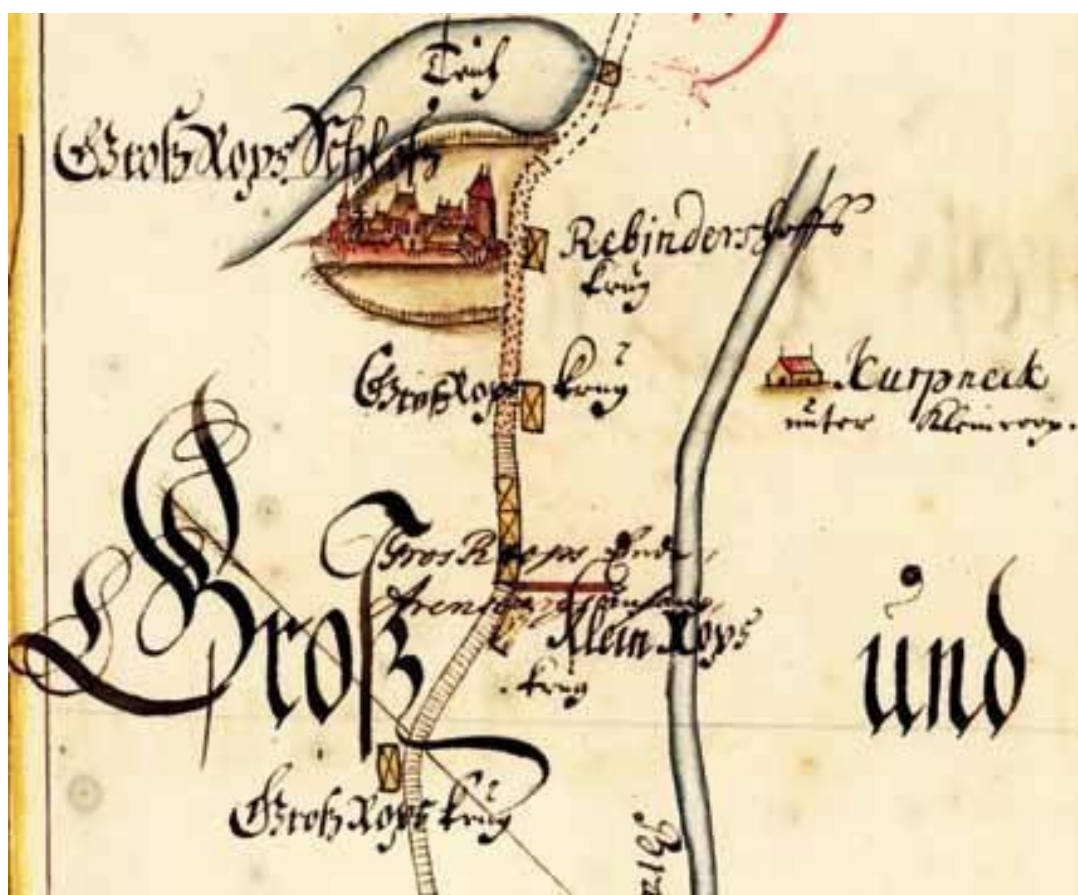 Teich
Groß Rops Schloß
Rebindershoffs
krug
Groß Rops krug
Kurpneck
unter Kleinroop.
Gros Roops Ende,
anfang,
Klein Rops
krug
Groß und
Groß Rops krug